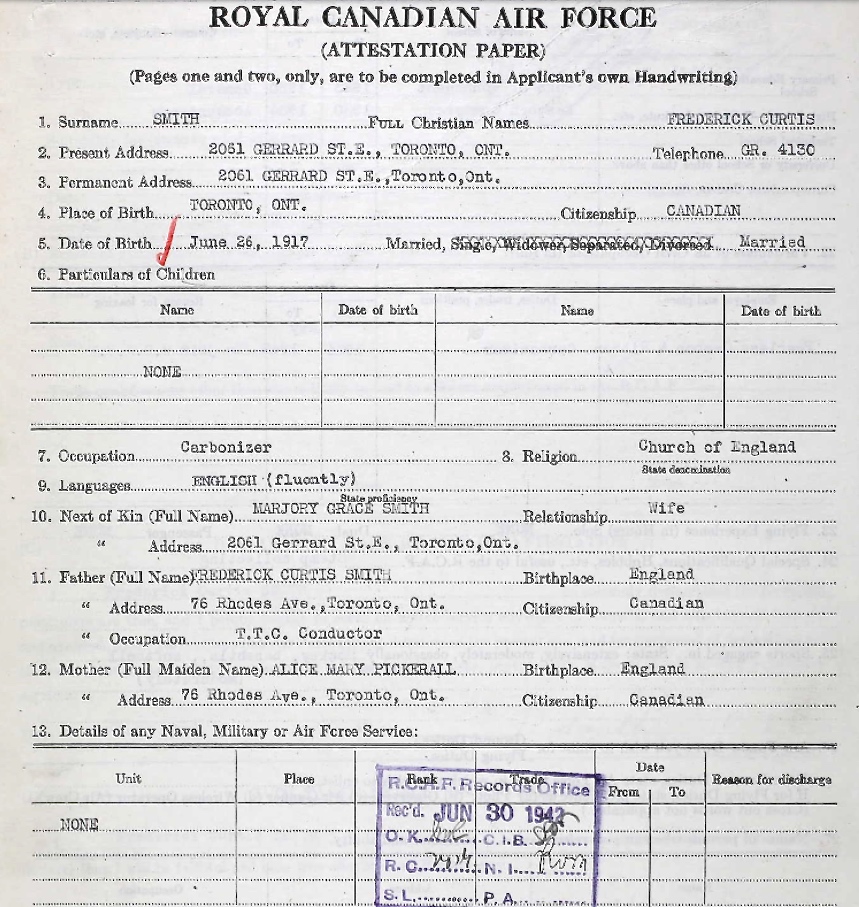 ROYAL CANADIAN AIR FORCE
(ATTESTATION PAPER)
(Pages one and two, only, are to be completed in Applicant's own Handwriting)
1. Surname SMITH FULL Christian Names FREDERICK CURTIS
2. Present Address 2061 GERRARD ST.E., TORONTO, ONT. Telephone GR. 4130
3. Permanent Address 2061 GERRARD ST.E.,Toronto,Ont.
4. Place of Birth TORONTO, ONT. Citizenship CANADIAN
5. Date of Birth June 26, 1917 Married, Single, Widower, Separated, Divorced Married
6. Particulars of Children
Name Date of birth Name Date of birth
NONE
7. Occupation Carbonizer 8. Religion Church of England
State denomination
9. Languages ENGLISH (fluently)
State proficiency
10. Next of Kin (Full Name) MARJORY GRACE SMITH Relationship Wife
" Address 2061 Gerrard St.E., Toronto,Ont.
11. Father (Full Name) FREDERICK CURTIS SMITH Birthplace England
" Address 76 Rhodes Ave.,Toronto, Ont. Citizenship Canadian
" Occupation T.T.C. Conductor
12. Mother (Full Maiden Name) ALICE MARY PICKERALL Birthplace England
" Address 76 Rhodes Ave., Toronto, Ont. Citizenship Canadian
13. Details of any Naval, Military or Air Force Service:
Unit Place Rank Trade Date Reason for discharge
From To
NONE
R.C.A.F. Records Office
Rec'd. JUN 30 1942
O.K. C.I.B.
R.C. N.I.
S.L. P.A.